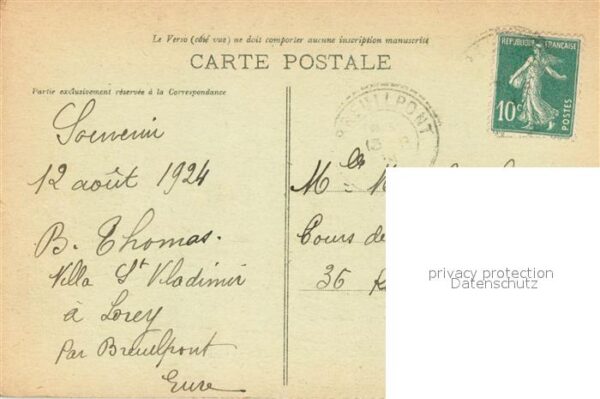 Le Verso (côté vue) ne doit comporter aucune inscription manuscrite
CARTE POSTALE
Partie exclusivement réservée à la Correspondance
RÉPUBLIQUE FRANÇAISE
10c
POSTES
BREUILPONT
Souvenir
12 août 1924
B. Thomas.
Villa St Vladimir
à Lorey
Par Breuilpont
Eure
Cours de
36
privacy protection
Datenschutz